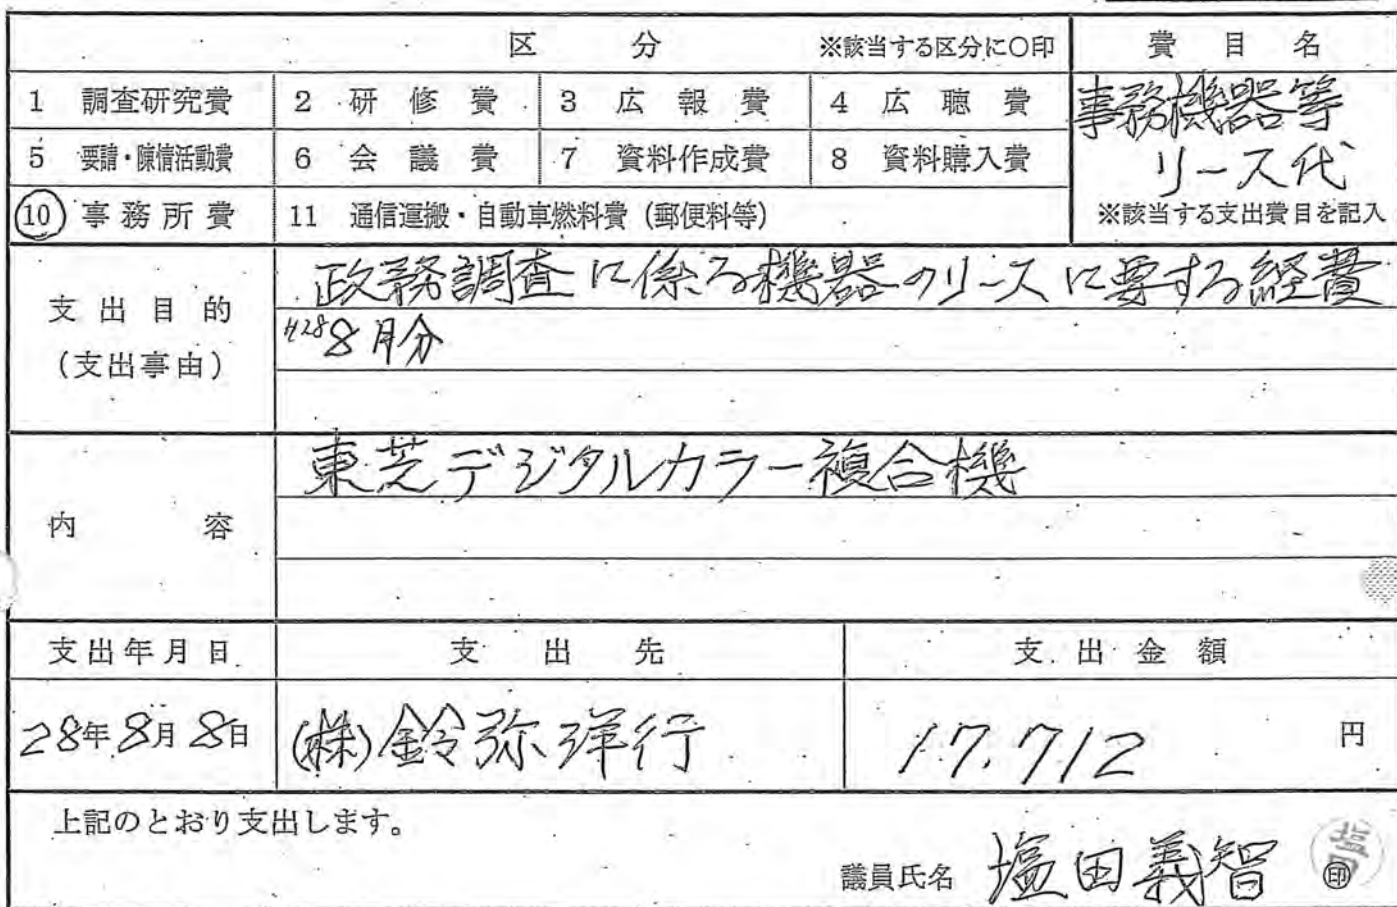 区 分 ※該当する区分に○印 費 目 名
1 調査研究費 2 研 修 費 3 広 報 費 4 広 聴 費 事務機器等
5 要請・陳情活動費 6 会 議 費 7 資料作成費 8 資料購入費 リース代
10 事務所費 11 通信運搬・自動車燃料費（郵便料等） ※該当する支出費目を記入
支出目的 政務調査に係る機器のリースに要する経費
（支出事由） H28 8月分
内 容 東芝デジタルカラー複合機
支出年月日 支 出 先 支 出 金 額
28年8月8日 (株)鈴弥洋行 17,712 円
上記のとおり支出します。
議員氏名 塩田義智 ㊞